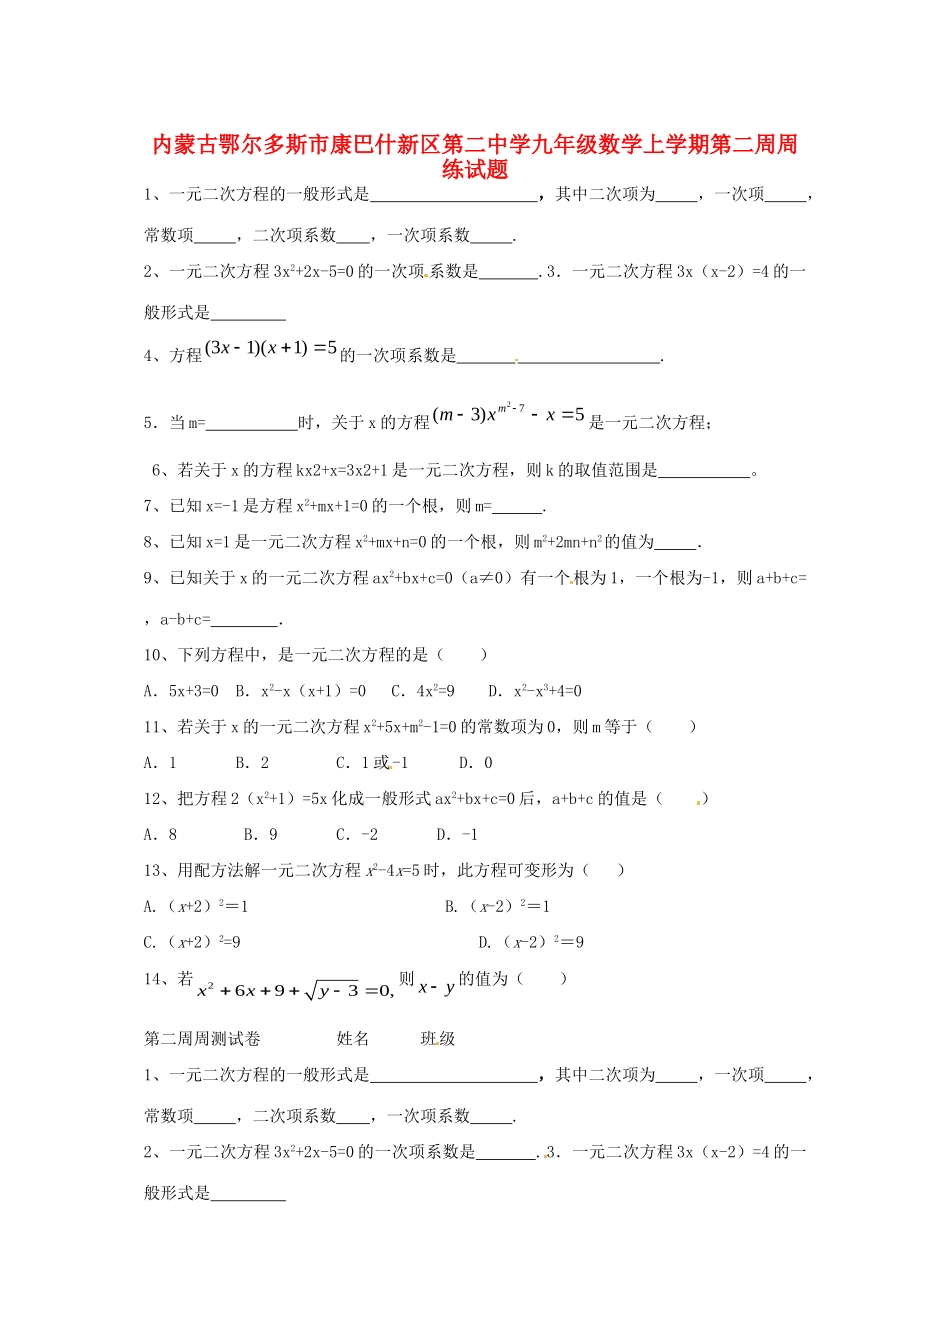 内蒙古鄂尔多斯市康巴什新区第二中学九年级数学上学期第二周周
练试题
1、一元二次方程的一般形式是____________________,其中二次项为_____,一次项_____,
常数项_____,二次项系数____,一次项系数_____.
2、一元二次方程 3x²+2x-5=0 的一次项系数是_______.3．一元二次方程 3x（x-2）=4 的一
般形式是_________
4、方程(3x-1)(x+1)=5的一次项系数是________________________.
5．当 m=___________时，关于 x 的方程(m-3)x^{m²-7}-x=5是一元二次方程;
6、若关于 x 的方程 kx2+x=3x2+1 是一元二次方程，则 k 的取值范围是___________。
7、已知 x=-1 是方程 x²+mx+1=0 的一个根，则 m=______.
8、已知 x=1 是一元二次方程 x²+mx+n=0 的一个根，则 m²+2mn+n²的值为_____．
9、已知关于 x 的一元二次方程 ax²+bx+c=0（a≠0）有一个根为 1，一个根为-1，则 a+b+c=
，a-b+c=________．
10、下列方程中，是一元二次方程的是（　　）
A．5x+3=0 B．x²-x（x+1）=0 C．4x²=9 D．x²-x³+4=0
11、若关于 x 的一元二次方程 x²+5x+m²-1=0 的常数项为 0，则 m 等于（　　）
A．1 B．2 C．1 或-1 D．0
12、把方程 2（x²+1）=5x 化成一般形式 ax²+bx+c=0 后，a+b+c 的值是（　　）
A．8 B．9 C．-2 D．-1
13、用配方法解一元二次方程 x²-4x=5 时，此方程可变形为（　　）
A.（x+2）²＝1 B.（x-2）²＝1
C.（x+2）²=9 D.（x-2）²＝9
14、若x²+6x+9+√(y-3)=0,则x-y的值为（　　）
第二周周测试卷 姓名 班级
1、一元二次方程的一般形式是____________________,其中二次项为_____,一次项_____,
常数项_____,二次项系数____,一次项系数_____.
2、一元二次方程 3x²+2x-5=0 的一次项系数是_______.3．一元二次方程 3x（x-2）=4 的一
般形式是_________